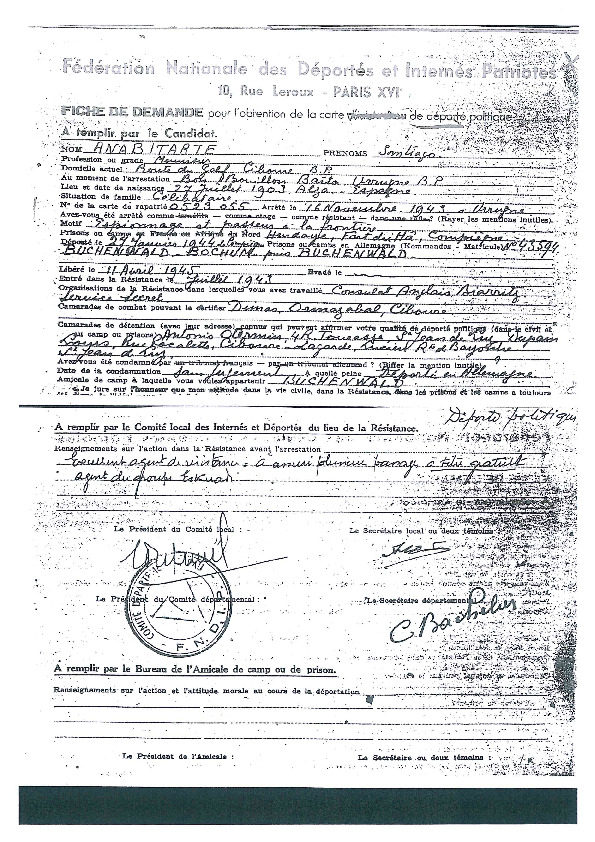 Fédération Nationale des Déportés et Internés Patriotes
10, Rue Leroux - PARIS XVI
FICHE DE DEMANDE pour l'obtention de la carte de déporté politique
A remplir par le Candidat.
NOM ANABITARTE PRENOMS Santiago
Profession ou grade Menuisier
Domicile actuel Route du Golf Ciboure B.P.
Au moment de l'arrestation Baita Urrugne B.P
Lieu et date de naissance 27 Juillet 1903 Alza Espagne
Situation de famille Célibataire
N° de la carte de rapatrié 0593 055 Arrêté le 16 Novembre 1943 Urrugne
Avez-vous été arrêté comme — comme otage — comme résistant — (Rayer les mentions inutiles).
Motif Espionnage et passeur à la frontière
Prisons ou camps en France ou Afrique du Nord Hendaye, Fort du Hâ, Compiègne
Déporté le 27 Janvier 1944 Prisons ou camps en Allemagne (Kommandos - Matricule) N° 43594
BUCHENWALD - BOCHUM puis BUCHENWALD
Libéré le 11 Avril 1945 Evadé le
Entré dans la Résistance le Juillet 1943
Organisations de la Résistance dans lesquelles vous avez travaillé Consulat Anglais Biarritz
Service Secret
Camarades de combat pouvant le certifier Dimas, Ciboure
Camarades de détention (avec leur adresse) connus qui peuvent affirmer votre qualité de déporté politique (dans le civil et
au camp ou prison) Antonio St Jean de Luz Dupain
Louis, Ciboure, Lagarde Lucien Rd Bayonne
St Jean de Luz
Avez-vous été condamné par un tribunal français — par un tribunal allemand ? (Biffer la mention inutile)
Date de la condamnation Sans Jugement à quelle peine Déporté en Allemagne
Amicale de camp à laquelle vous voulez appartenir BUCHENWALD
Je jure sur l'honneur que mon attitude dans la vie civile, dans la Résistance, dans les prisons et les camps a toujours
Déporté politique
A remplir par le Comité local des Internés et Déportés du lieu de la Résistance.
Renseignements sur l'action dans la Résistance avant l'arrestation
Excellent agent de résistance a assuré plusieurs passages à titre gratuit
agent du groupe
Le Président du Comité local : Le Secrétaire local ou deux témoins :
Le Président du Comité départemental : Le Secrétaire départemental
C. Bachelier
COMITÉ DÉPAR
F.N.D.I.
A remplir par le Bureau de l'Amicale de camp ou de prison.
Renseignements sur l'action et l'attitude morale au cours de la déportation
Le Président de l'Amicale : Le Secrétaire ou deux témoins :